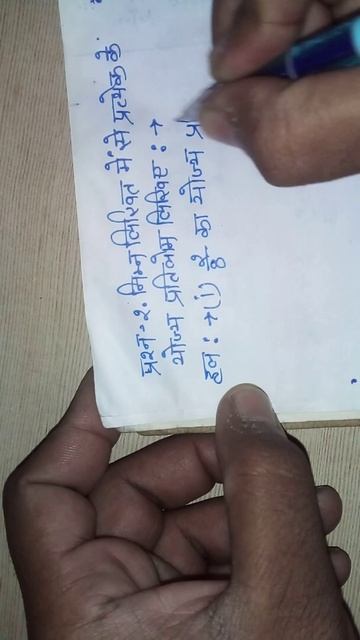 प्रश्न-२. निम्नलिखित में से प्रत्येक के
योज्य प्रतिलोम लिखिए : →
हल : → (i) का योज्य प्र